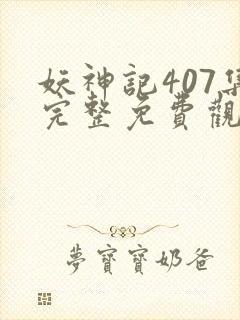 妖神記407集
完整免費觀
夢寶寶奶爸